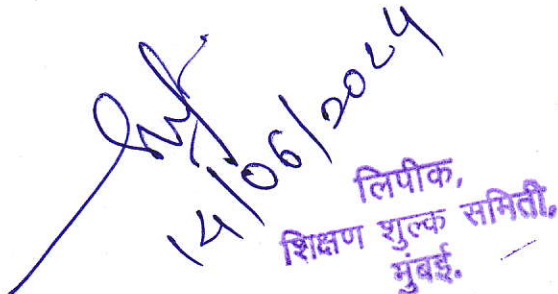 14/06/2024
लिपीक,
शिक्षण शुल्क समिती,
मुंबई.